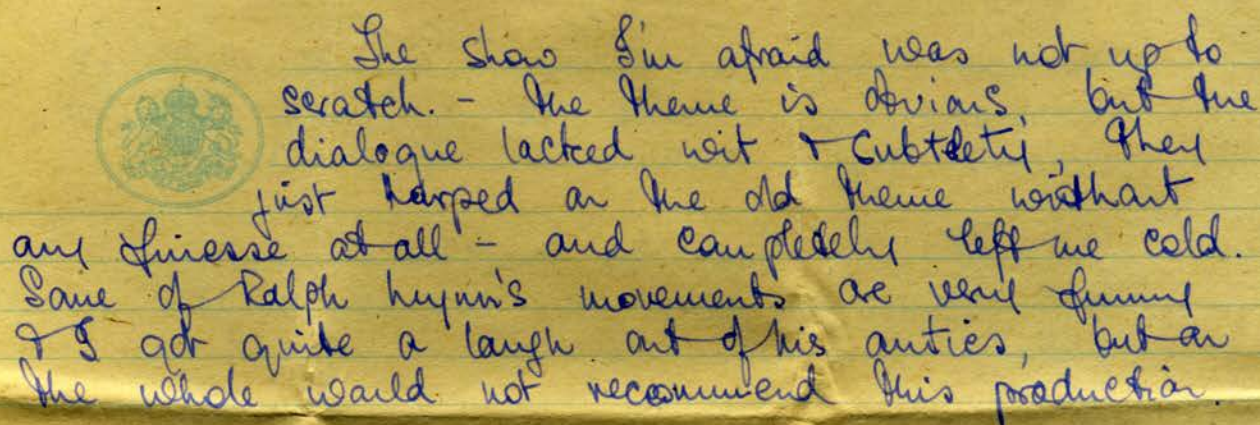 The show I'm afraid was not up to
scratch. - the theme is obvious, but the
dialogue lacked wit & subtlety, they
just harped on the old theme without
any finesse at all - and completely left me cold.
Some of Ralph Lynn's movements are very funny
& I got quite a laugh out of his antics, but on
the whole would not recommend this production.